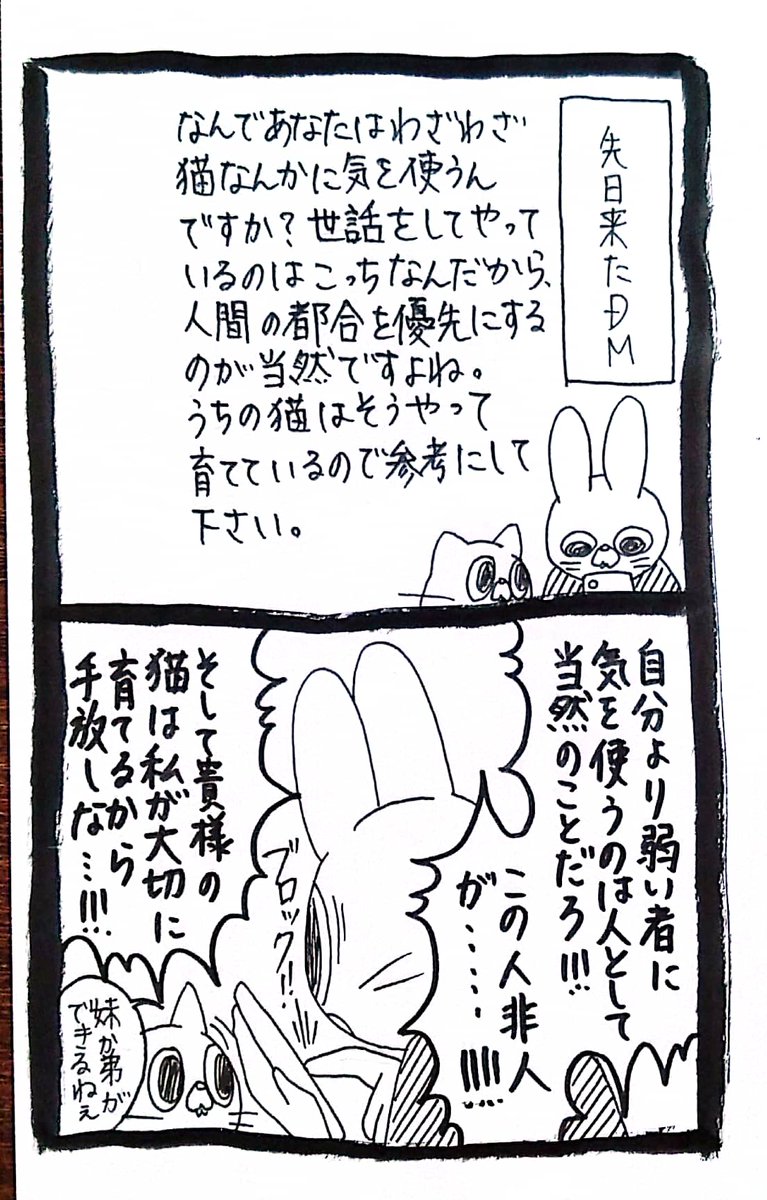 先日来たDM
なんであなたはわざわざ
猫なんかに気を使うん
ですか?世話をしてやって
いるのはこっちなんだから、
人間の都合を優先にする
のが当然ですよね。
うちの猫はそうやって
育てているので参考にして
下さい。
自分より弱い者に
気を使うのは人として
当然のことだろ!!!
この人非人
が……!!!!
ブロック!!
そして貴様の
猫は私が大切に
育てるから
手放しな…!!!
妹か弟が
できるねぇ